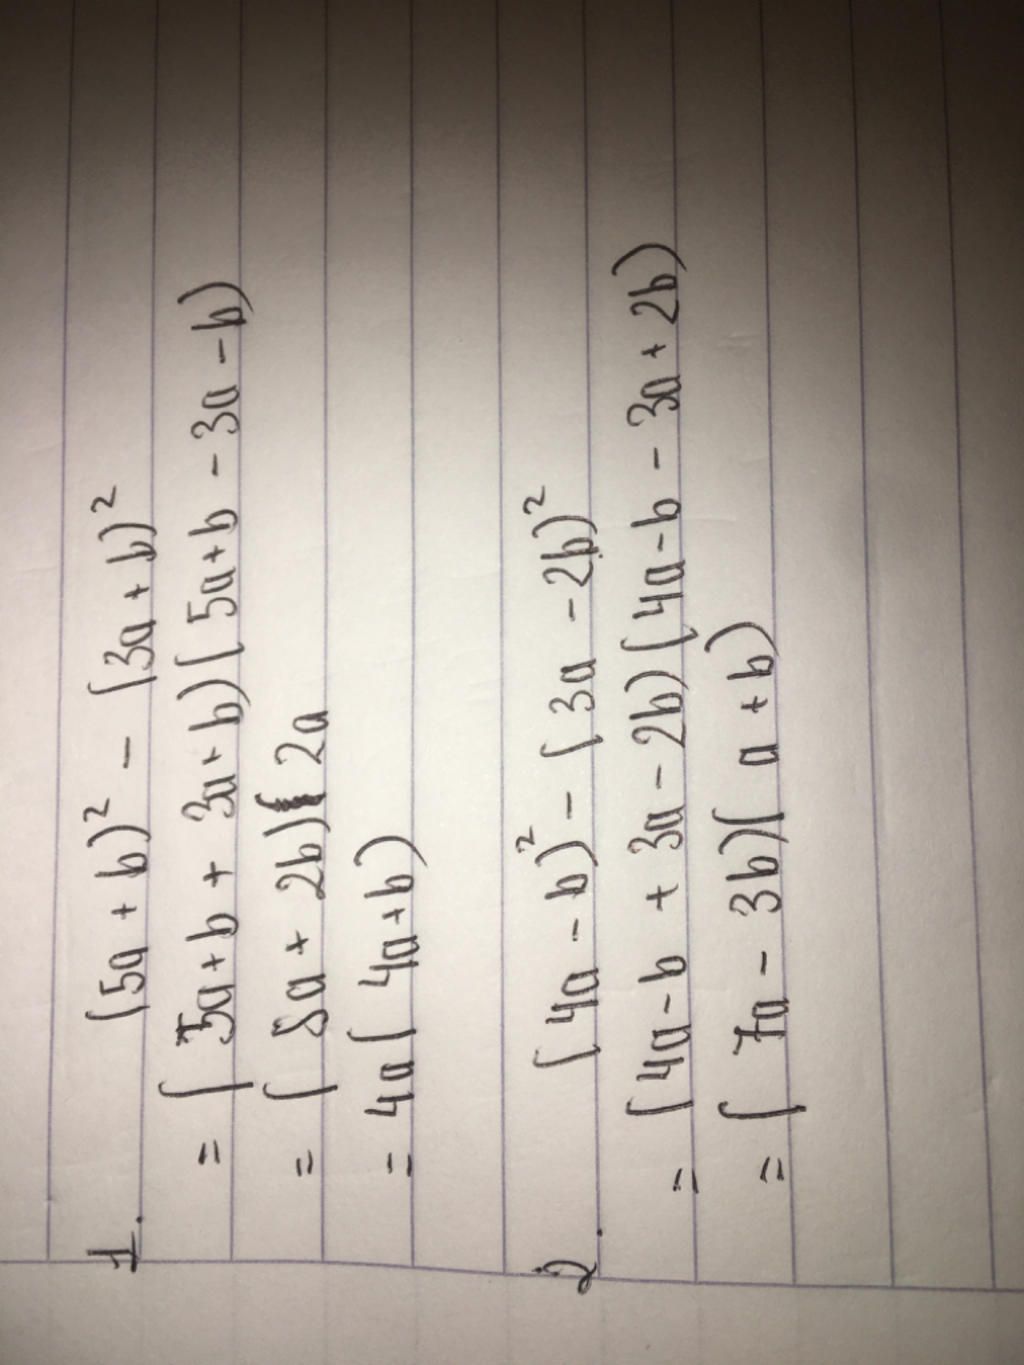 1. (5a + b)² - (3a + b)²
= (5a + b + 3a + b)(5a + b - 3a - b)
= (8a + 2b)(2a
= 4a(4a + b)
2. (4a - b)² - (3a - 2b)²
= (4a - b + 3a - 2b)(4a - b - 3a + 2b)
= (7a - 3b)(a + b)